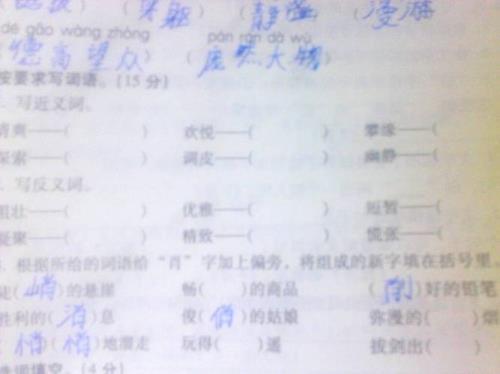 ( ) ( 身躯 ) ( 静谧 ) ( 漫游
dé gāo wàng zhòng pán rán dà wù
( 德高望众 ) ( 庞然大物 )
按要求写词语。(15 分)
写近义词。
清爽——( ) 欢悦——( ) 攀缘——(
探索——( ) 调皮——( ) 幽静——(
写反义词。
粗壮——( ) 优雅——( ) 短暂——(
凝聚——( ) 精致——( ) 慌张——(
根据所给的词语给“肖”字加上偏旁,将组成的新字填在括号里。
陡( 峭 )的悬崖 畅( )的商品 ( 削 )好的铅笔
胜利的( 消 )息 俊( 俏 )的姑娘 弥漫的( )烟
( 悄 )( 悄 )地溜走 玩得( )遥 拔剑出( )
词填空。(4 分)